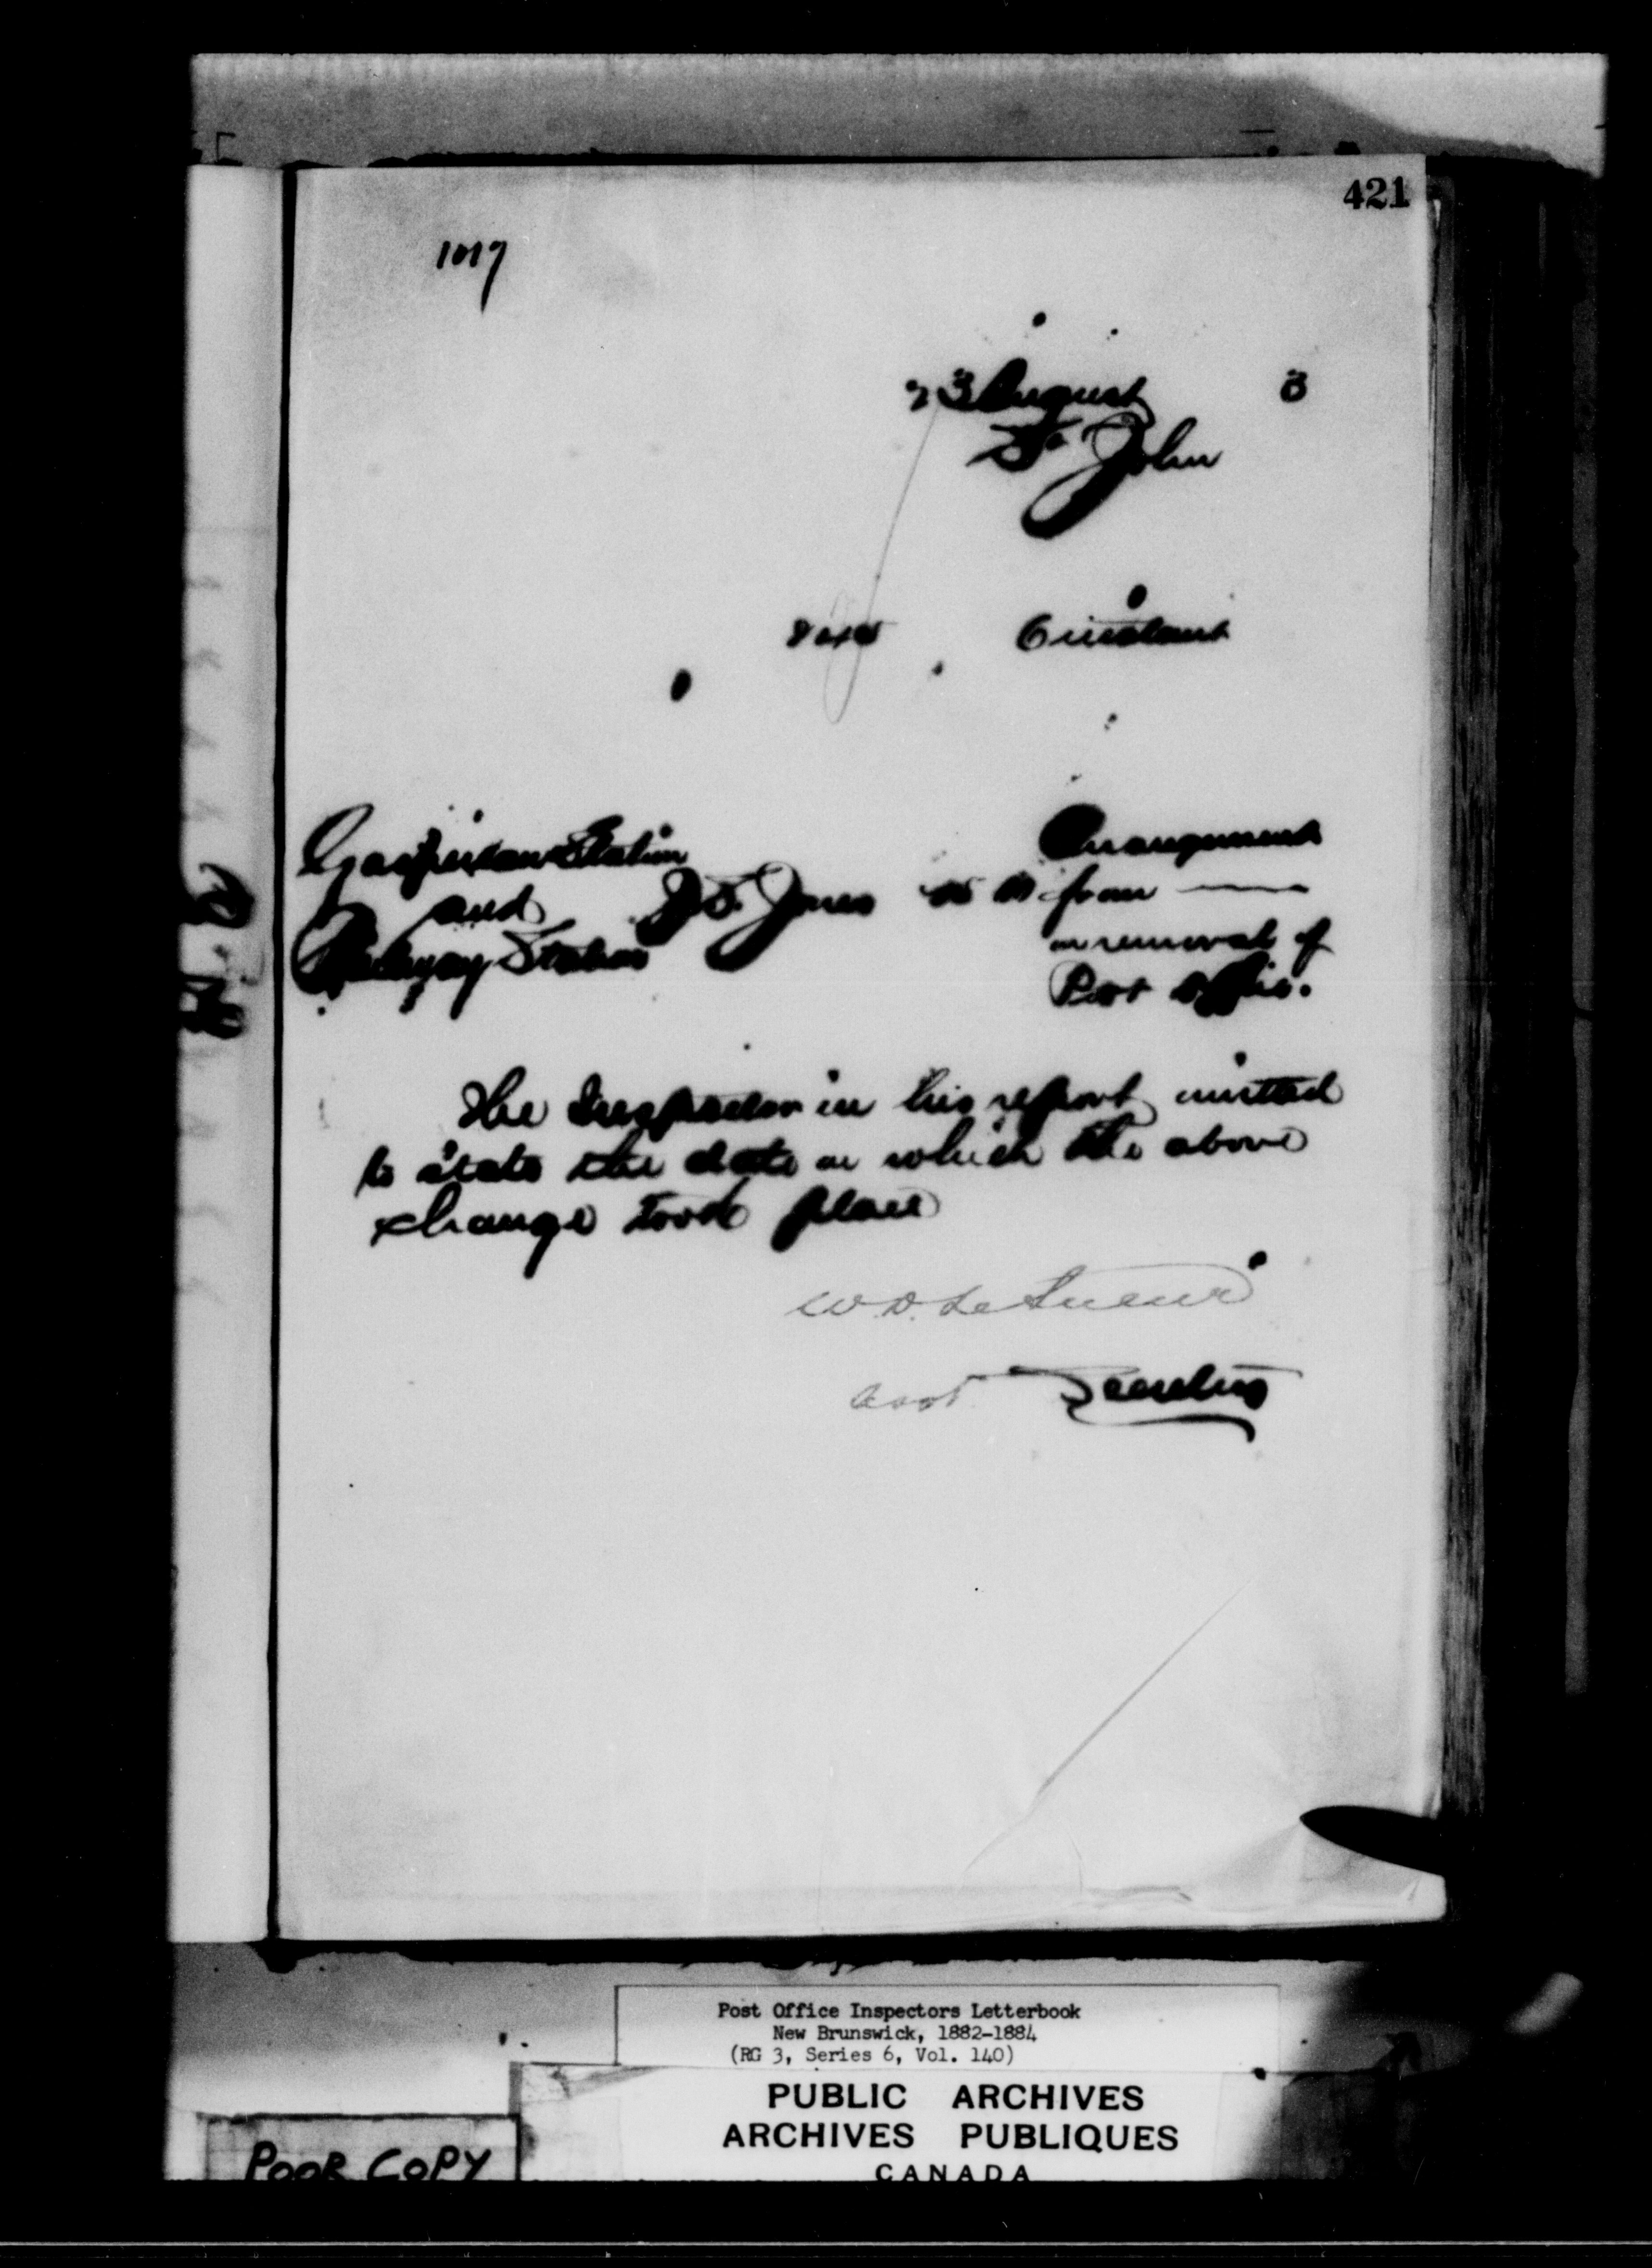 421
1017
23 August 3
St John
6 instant
Gaspereau Station Arrangement
and J. S. Jones from —
Station on removal of
Post Office.
The Inspector in his report omitted
to state the date on which the above
change took place
W. D. LeSueur
Asst Secretary
Post Office Inspectors Letterbook
New Brunswick, 1882-1884
(RG 3, Series 6, Vol. 140)
PUBLIC ARCHIVES
ARCHIVES PUBLIQUES
CANADA
POOR COPY